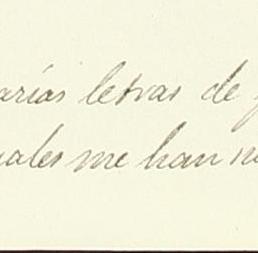 arías letras de
uales me han